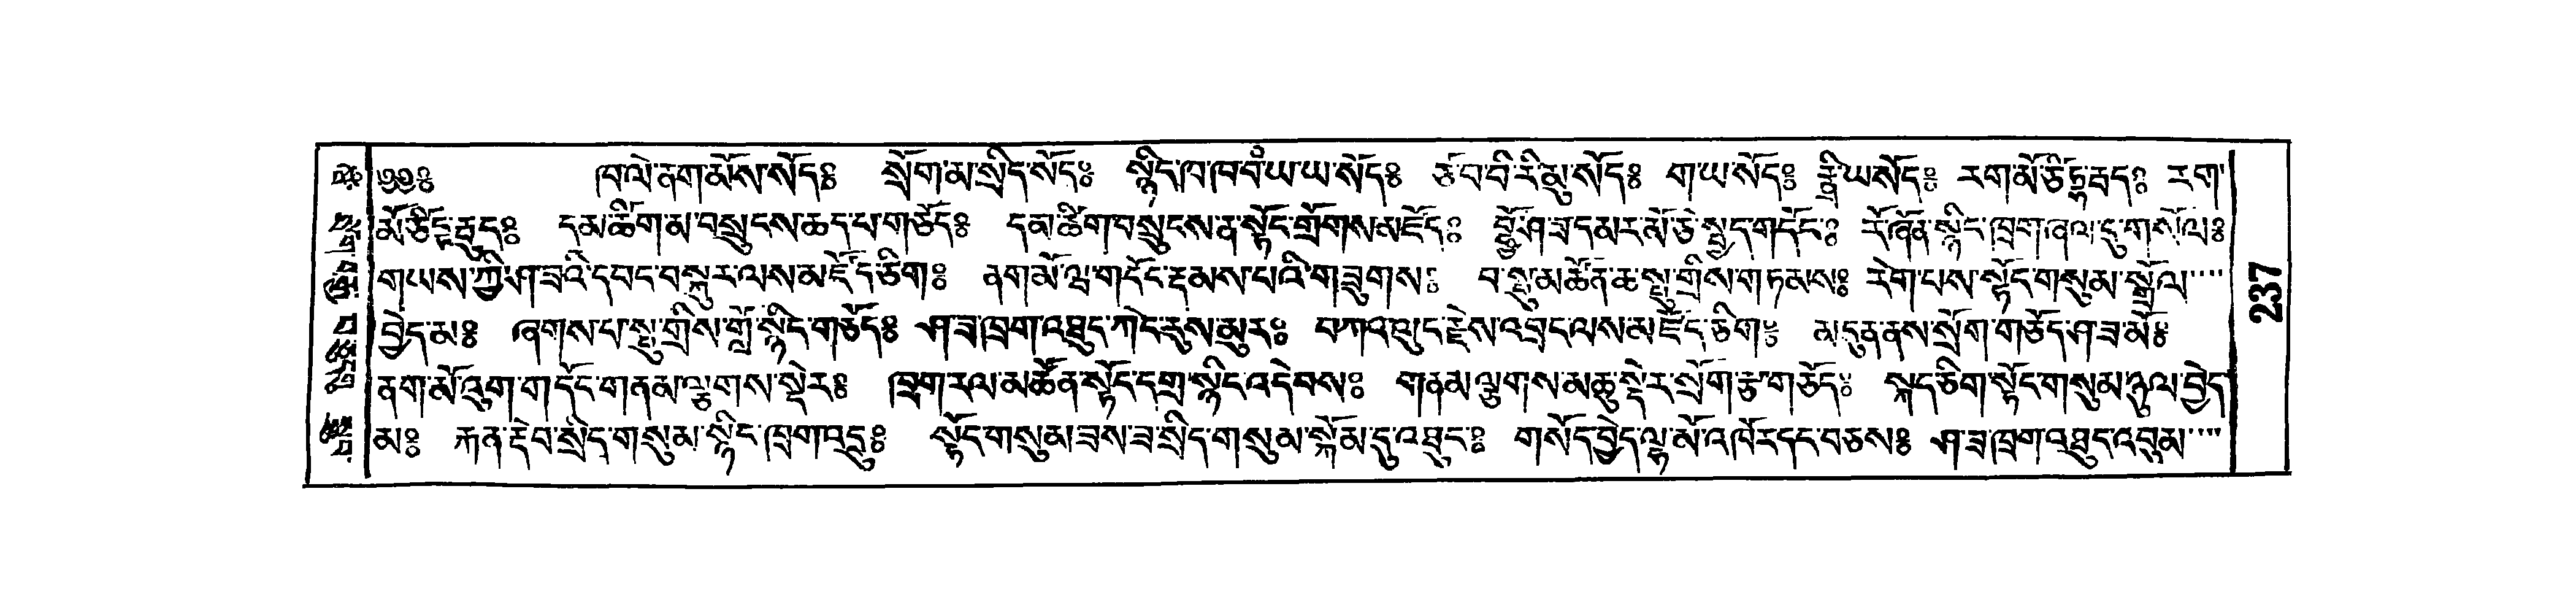 ༄༅༔ ཁ་ལེ་ནག་མོས་སོད༔ སྲོག་མ་སྲིད་སོད༔ སྙིང་ཁ་ཁ་བཾ་ཡ་ཡ་སོད༔ རྩ་བ་བི་རི་མུ་སོད༔ ག་ཡ་སོད༔ རག་མོ་ཙིཏྟ་རྦད༔ རག་
མོ་ཙིཏྟ་རྦུད༔ དམ་ཚིག་མ་བསྲུངས་ཆད་པ་གཅོད༔ དམ་ཚིག་བསྲུངས་ན་སྟོང་གྲོགས་མཛོད༔ ཤ་ཟ་དམར་མོ་ཙེ་སྤྱང་གདོང༔ རོ་ཞོན་སྙིང་ཁྲག་ཞལ་དུ་གསོལ༔
གཡས་ཀྱི་ཤ་ཟའི་དབང་བསྐུར་ལས་མཛོད་ཅིག༔ ནག་མོ་ལྭ་གདོང་རྔམས་པའི་གཟུགས༔ བ་སྤུ་མཚོན་ཆ་སྤུ་གྲིས་གཏམས༔ རེག་པས་སྟོང་གསུམ་སྒྲོལ་
བྱེད་མ༔ ཞགས་པ་སྤུ་གྲིས་གློ་སྙིང་གཅོད༔ ཤ་ཟ་ཁྲག་འཐུང་ཀེང་རུས་མུར༔ བཀའ་ལུང་རྗེས་འབྲང་ལས་མཛོད་ཅིག༔ མདུན་ནས་སྲོག་གཅོད་ཤ་ཟ་མོ༔
ནག་མོ་འུག་གདོང་གནམ་ལྕགས་སྡེར༔ ཁྲག་རལ་མཚོན་སྟོང་དགྲ་སྙིང་འདེབས༔ གནམ་ལྕགས་མཆུ་སྡེར་སྲོག་རྩ་གཅོད༔ སྐད་ཅིག་སྟོང་གསུམ་ཉུལ་བྱེད་
མ༔ རྐན་རྡེབ་སྲིད་གསུམ་སྙིང་ཁྲག་འདྲུ༔ སྟོང་གསུམ་ཟས་ཟ་སྲིད་གསུམ་སྐོམ་དུ་འཐུང༔ གསོད་བྱེད་ལྷ་མོ་འཁོར་དང་བཅས༔ ཤ་ཟ་ཁྲག་འཐུང་འབུམ་